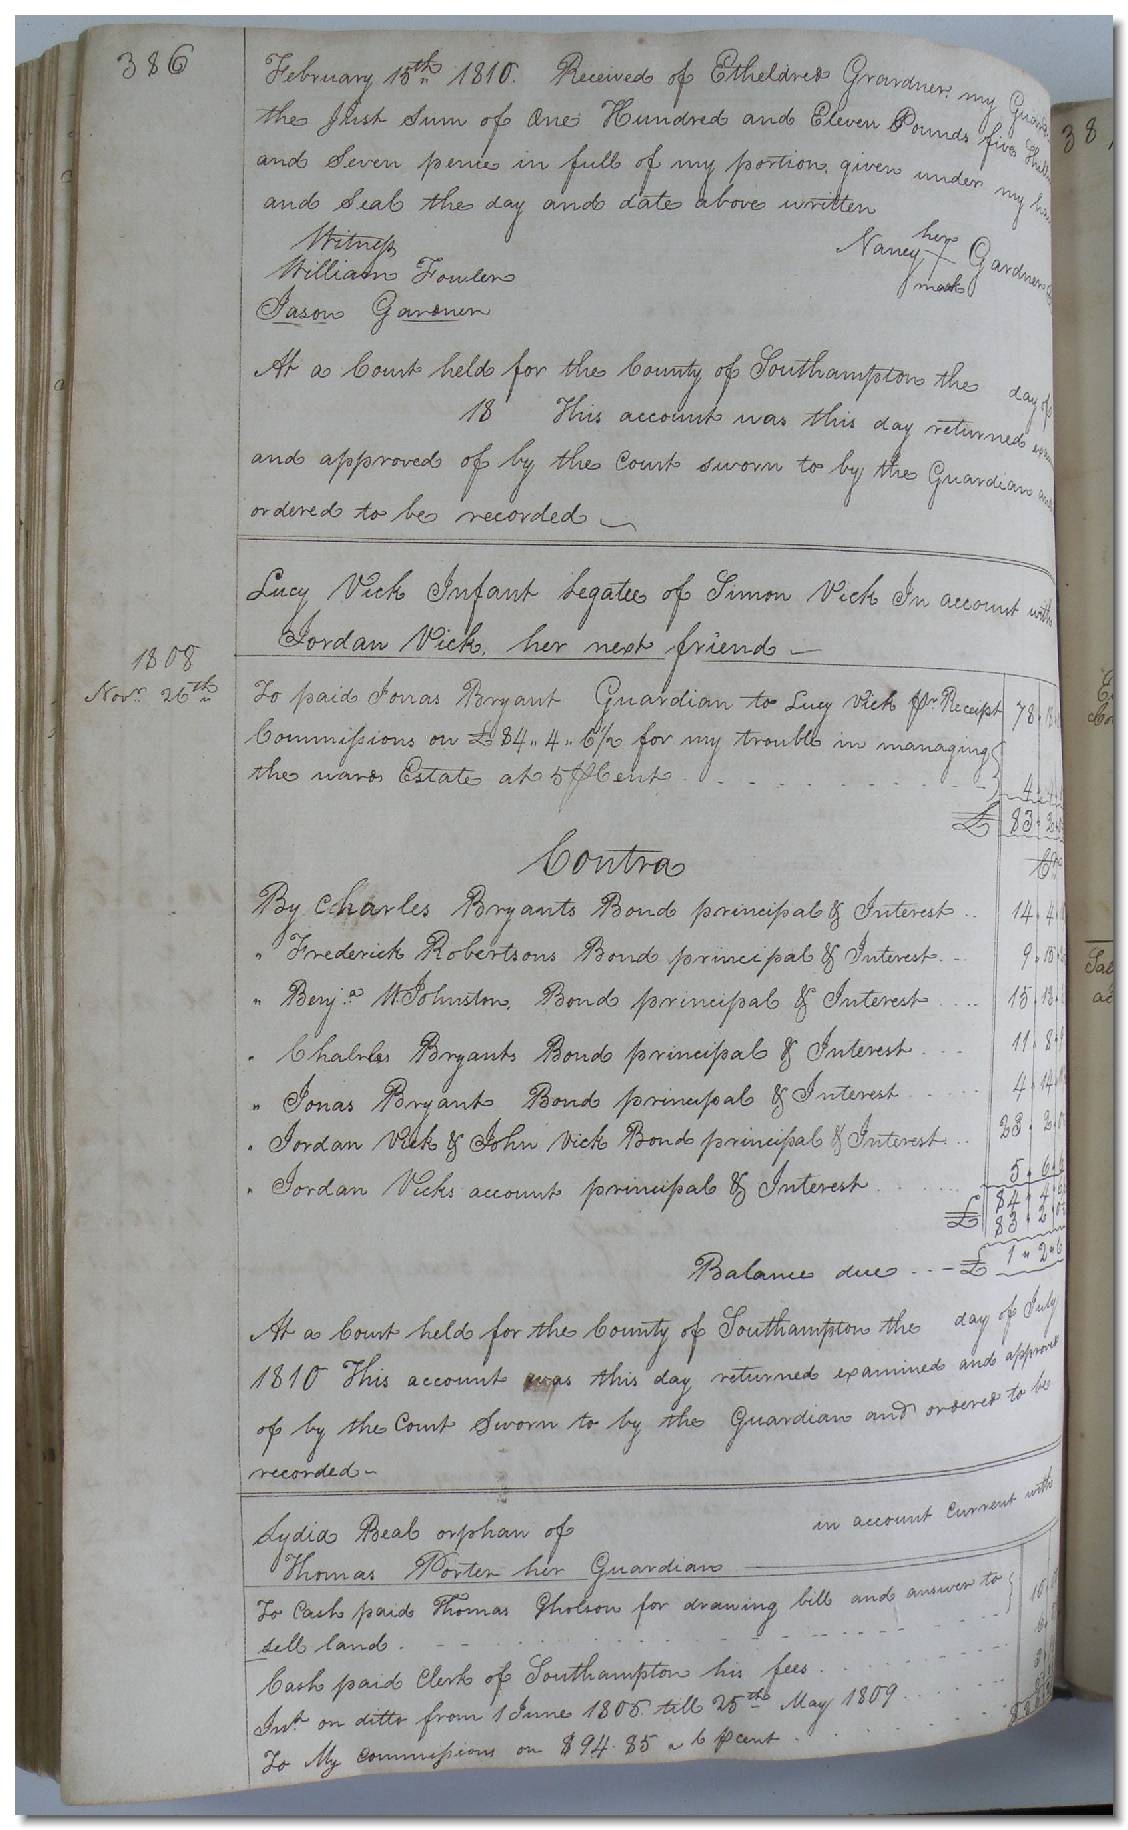 386
February 15th 1810. Received of Etheldred Grardner my
the Just Sum of One Hundred and Eleven Pounds five
and Seven pence in full of my portion, given under my
and Seal the day and date above written
Witness
her
Nancy + Gardner
mark
William Fowler
Jason Gardner
At a Court held for the County of Southampton the day of
18 This account was this day returned
and approved of by the Court sworn to by the Guardian and
ordered to be recorded
Lucy Vick Infant legatee of Simon Vick In account with
Jordan Vick, her next friend
1808
Novr. 26th To paid Jonas Bryant Guardian to Lucy Vick pr Receipt 78
Commissions on £84 „ 4 „ 6½ for my trouble in managing
the wards Estate at 5 p Cent 4
£ 83 „ 2
Contra Cr
By Charles Bryants Bond principal & Interest 14 „ 4
„ Frederick Robertsons Bond principal & Interest 9 „ 15
„ Benja. W Johnston, Bond principal & Interest 15 „ 13
„ Chalrles Bryants Bond principal & Interest 11 „ 8
„ Jonas Bryant Bond principal & Interest 4 „ 14
„ Jordan Vick & John Vick Bond principal & Interest 23 „ 2
„ Jordan Vicks account principal & Interest 5 „ 6
£ 84 „ 4
83 „ 2
Balance due £ 1 „ 2 „ 6
At a Court held for the County of Southampton the day of July
1810 This account was this day returned examined and approved
of by the Court Sworn to by the Guardian and ordered to be
recorded
Lydia Beal orphan of in account Current with
Thomas Porter her Guardian
To Cash paid Thomas Gholson for drawing bill and answer to
sell land
Cash paid Clerk of Southampton his fees
Int. on ditto from 1 June 1806 till 25th May 1809
To My commissions on $94.85 a 6 p cent